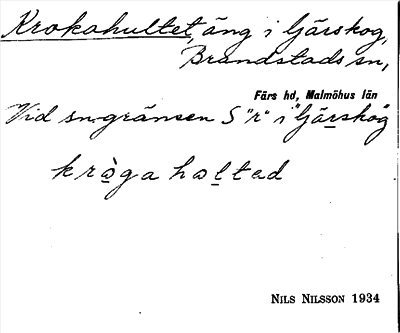 Krokahultet, äng i Gärskog,
Brandstads sn,
Färs hd, Malmöhus län
Vid sn-gränsen S "r" i "Gärskog"
kròga holtad
NILS NILSSON 1934